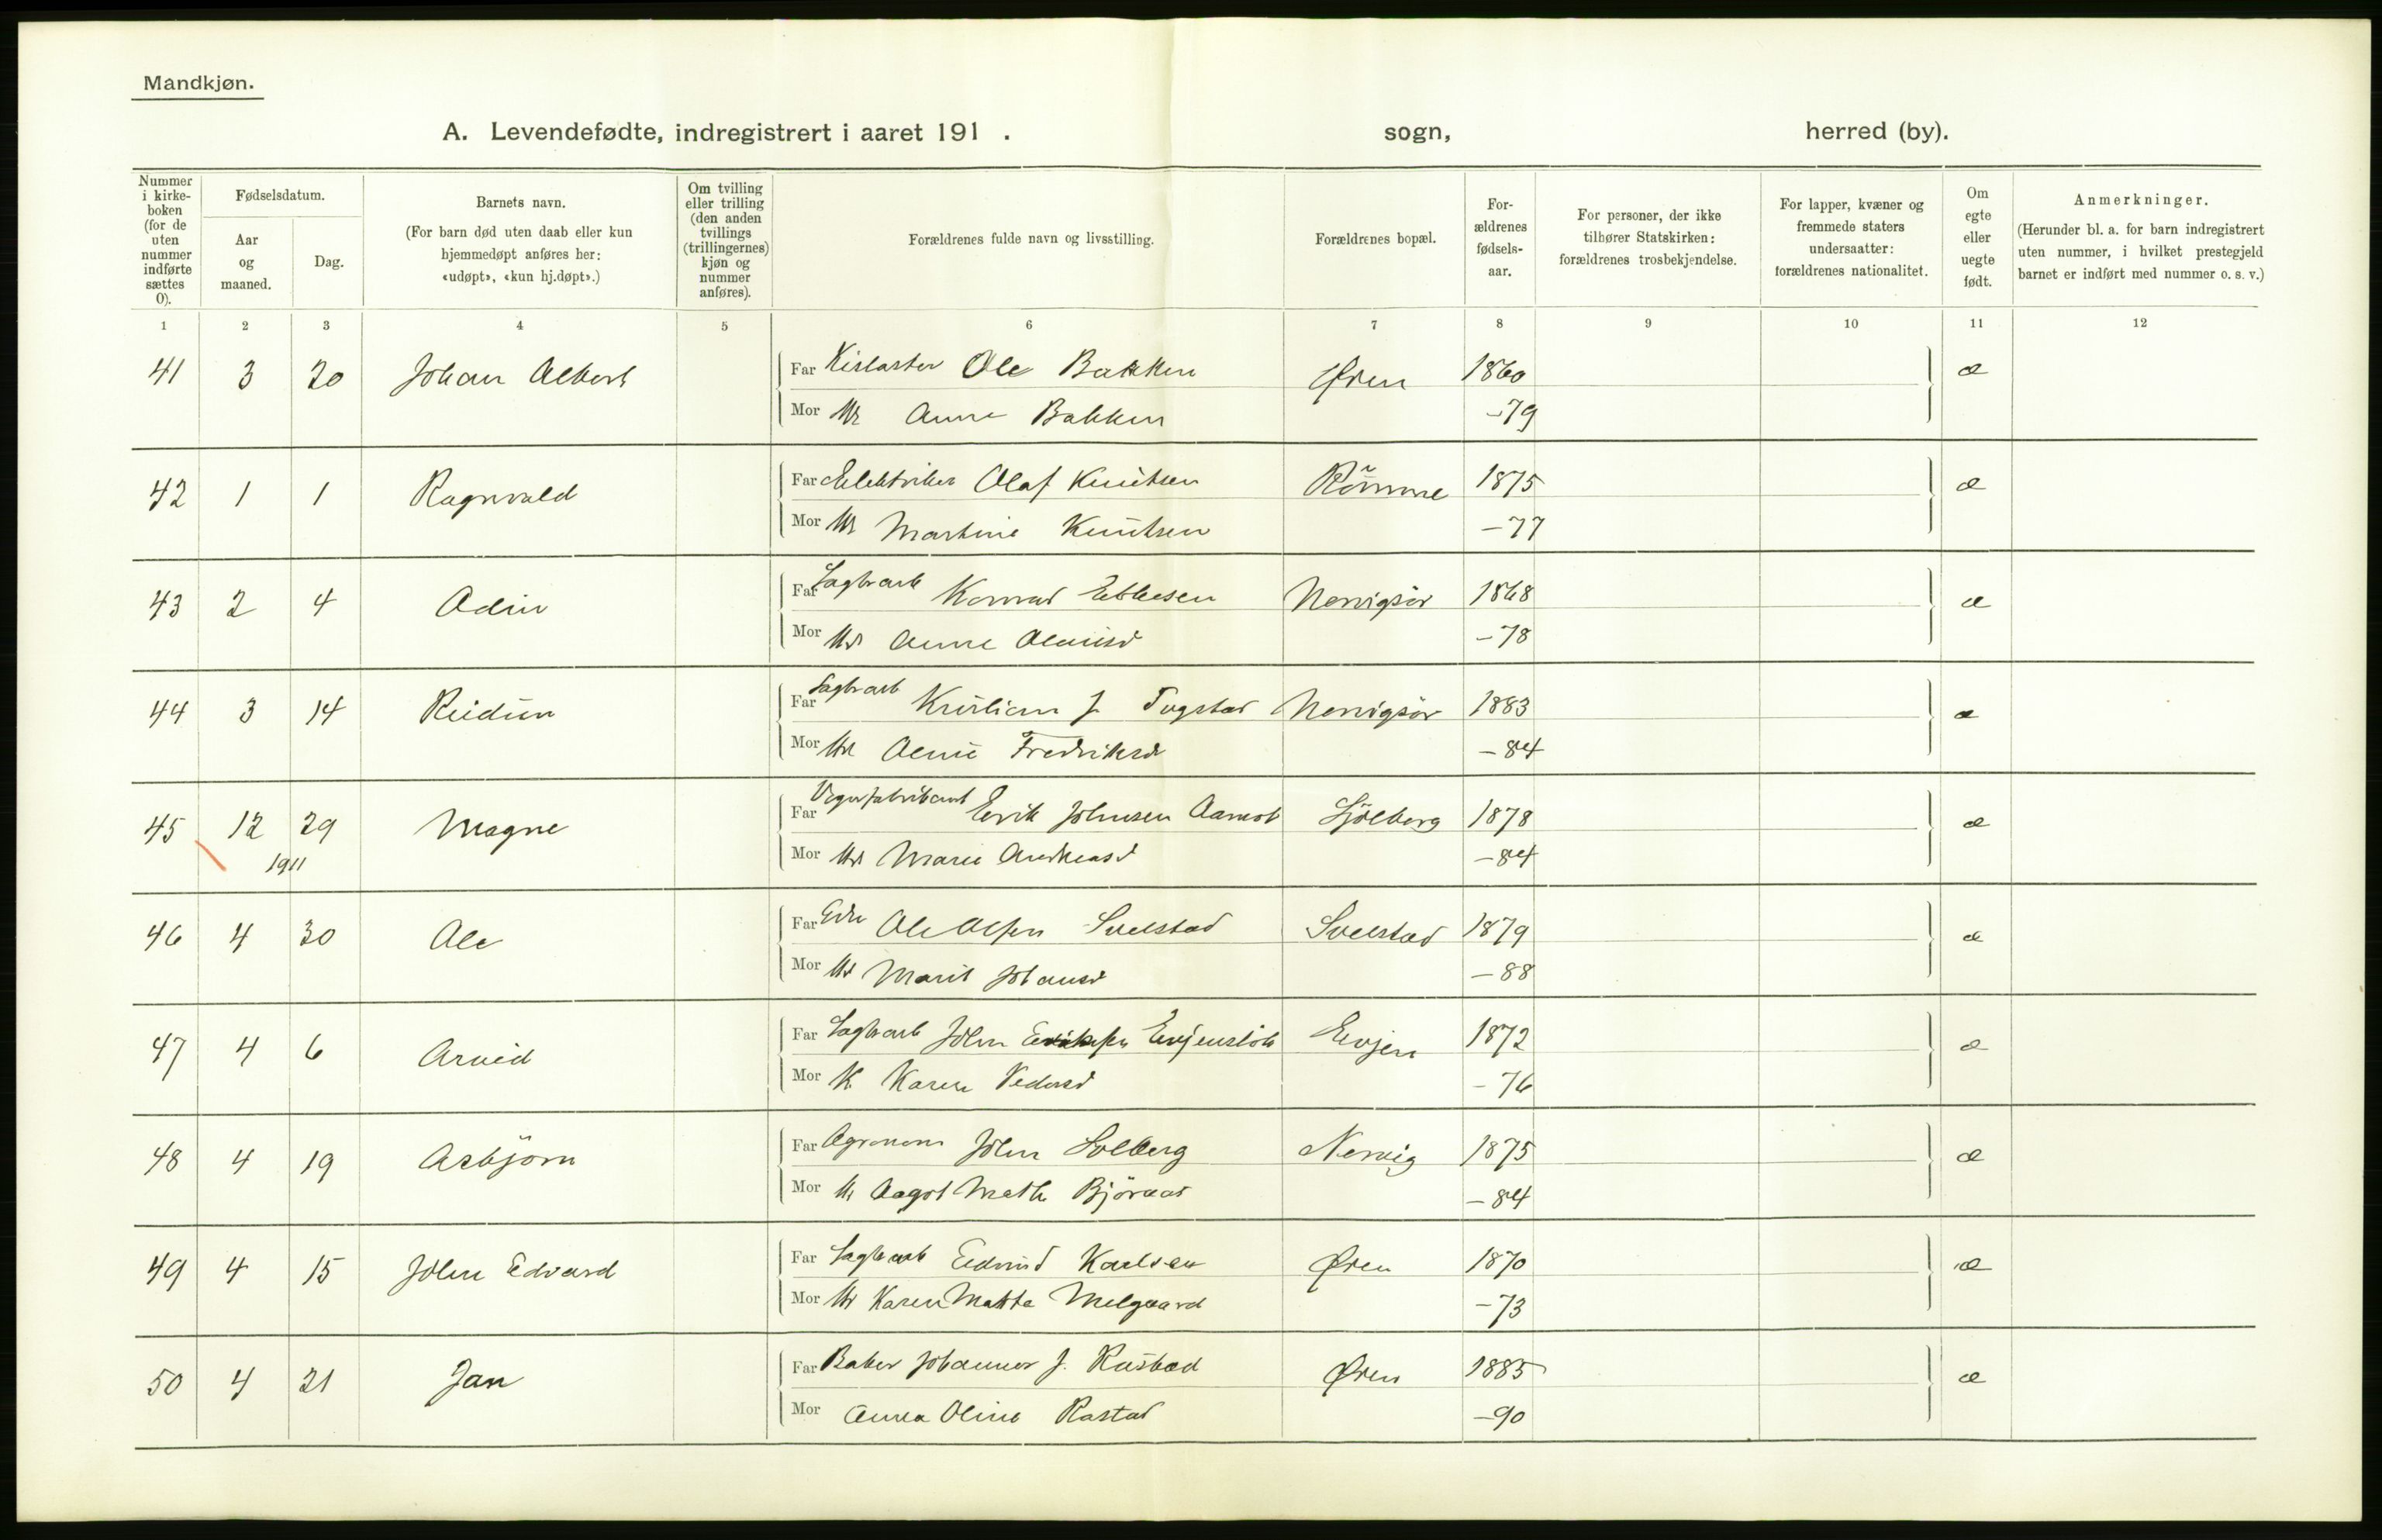 Mandkjøn.
A. Levendefødte, indregistrert i aaret 191 . sogn, herred (by).
Nummer i kirke-boken (for de uten nummer indførte sættes 0).
Fødselsdatum.
Aar og maaned.
Dag.
Barnets navn.
(For barn død uten daab eller kun hjemmedøpt anføres her: «udøpt», «kun hj.døpt».)
Om tvilling eller trilling (den anden tvillings (trillingernes) kjøn og nummer anføres).
Forældrenes fulde navn og livsstilling.
Forældrenes bopæl.
For-ældrenes fødsels-aar.
For personer, der ikke tilhører Statskirken: forældrenes trosbekjendelse.
For lapper, kvæner og fremmede staters undersaatter: forældrenes nationalitet.
Om egte eller uegte født.
Anmerkninger.
(Herunder bl. a. for barn indregistrert uten nummer, i hvilket prestegjeld barnet er indført med nummer o. s. v.)
1 2 3 4 5 6 7 8 9 10 11 12
41 3 20 Johan Albert Far Ole Bakken Øren 1860 æ
Mor Anne Bakken -79
42 1 1 Ragnvald Far Elektriker Olaf Knutsen Rømme 1875 æ
Mor Martine Knutsen -77
43 2 4 Odin Far Sagbrarb Konrad Ebbesen 1868 æ
Mor Anne -78
44 3 14 Reidun Far Sagbrarb Kristian J. Tugstad 1883 æ
Mor Fredriksd -84
45 12 29 Magne Far Vognfabrikant Erik Johnsen Aamot Sjølberg 1878 æ
1911
Mor Marie Andreasd -84
46 4 30 Ole Far Ole Olsen 1879 æ
Mor Marit Johansd -88
47 4 6 Arvid Far Sagbrarb John Evjen 1872 æ
Mor K Karen Pedersd -76
48 4 19 Asbjörn Far Agronom John Solberg Nervig 1875 æ
Mor Aagot Björnaas -84
49 4 15 John Edvard Far Sagbrarb Edvind Karlsen Øren 1870 æ
Mor Karen Melgaard -73
50 4 21 Jan Far Baker Johannes J. Rastad Øren 1885 æ
Mor Anna Oline Rastad -90